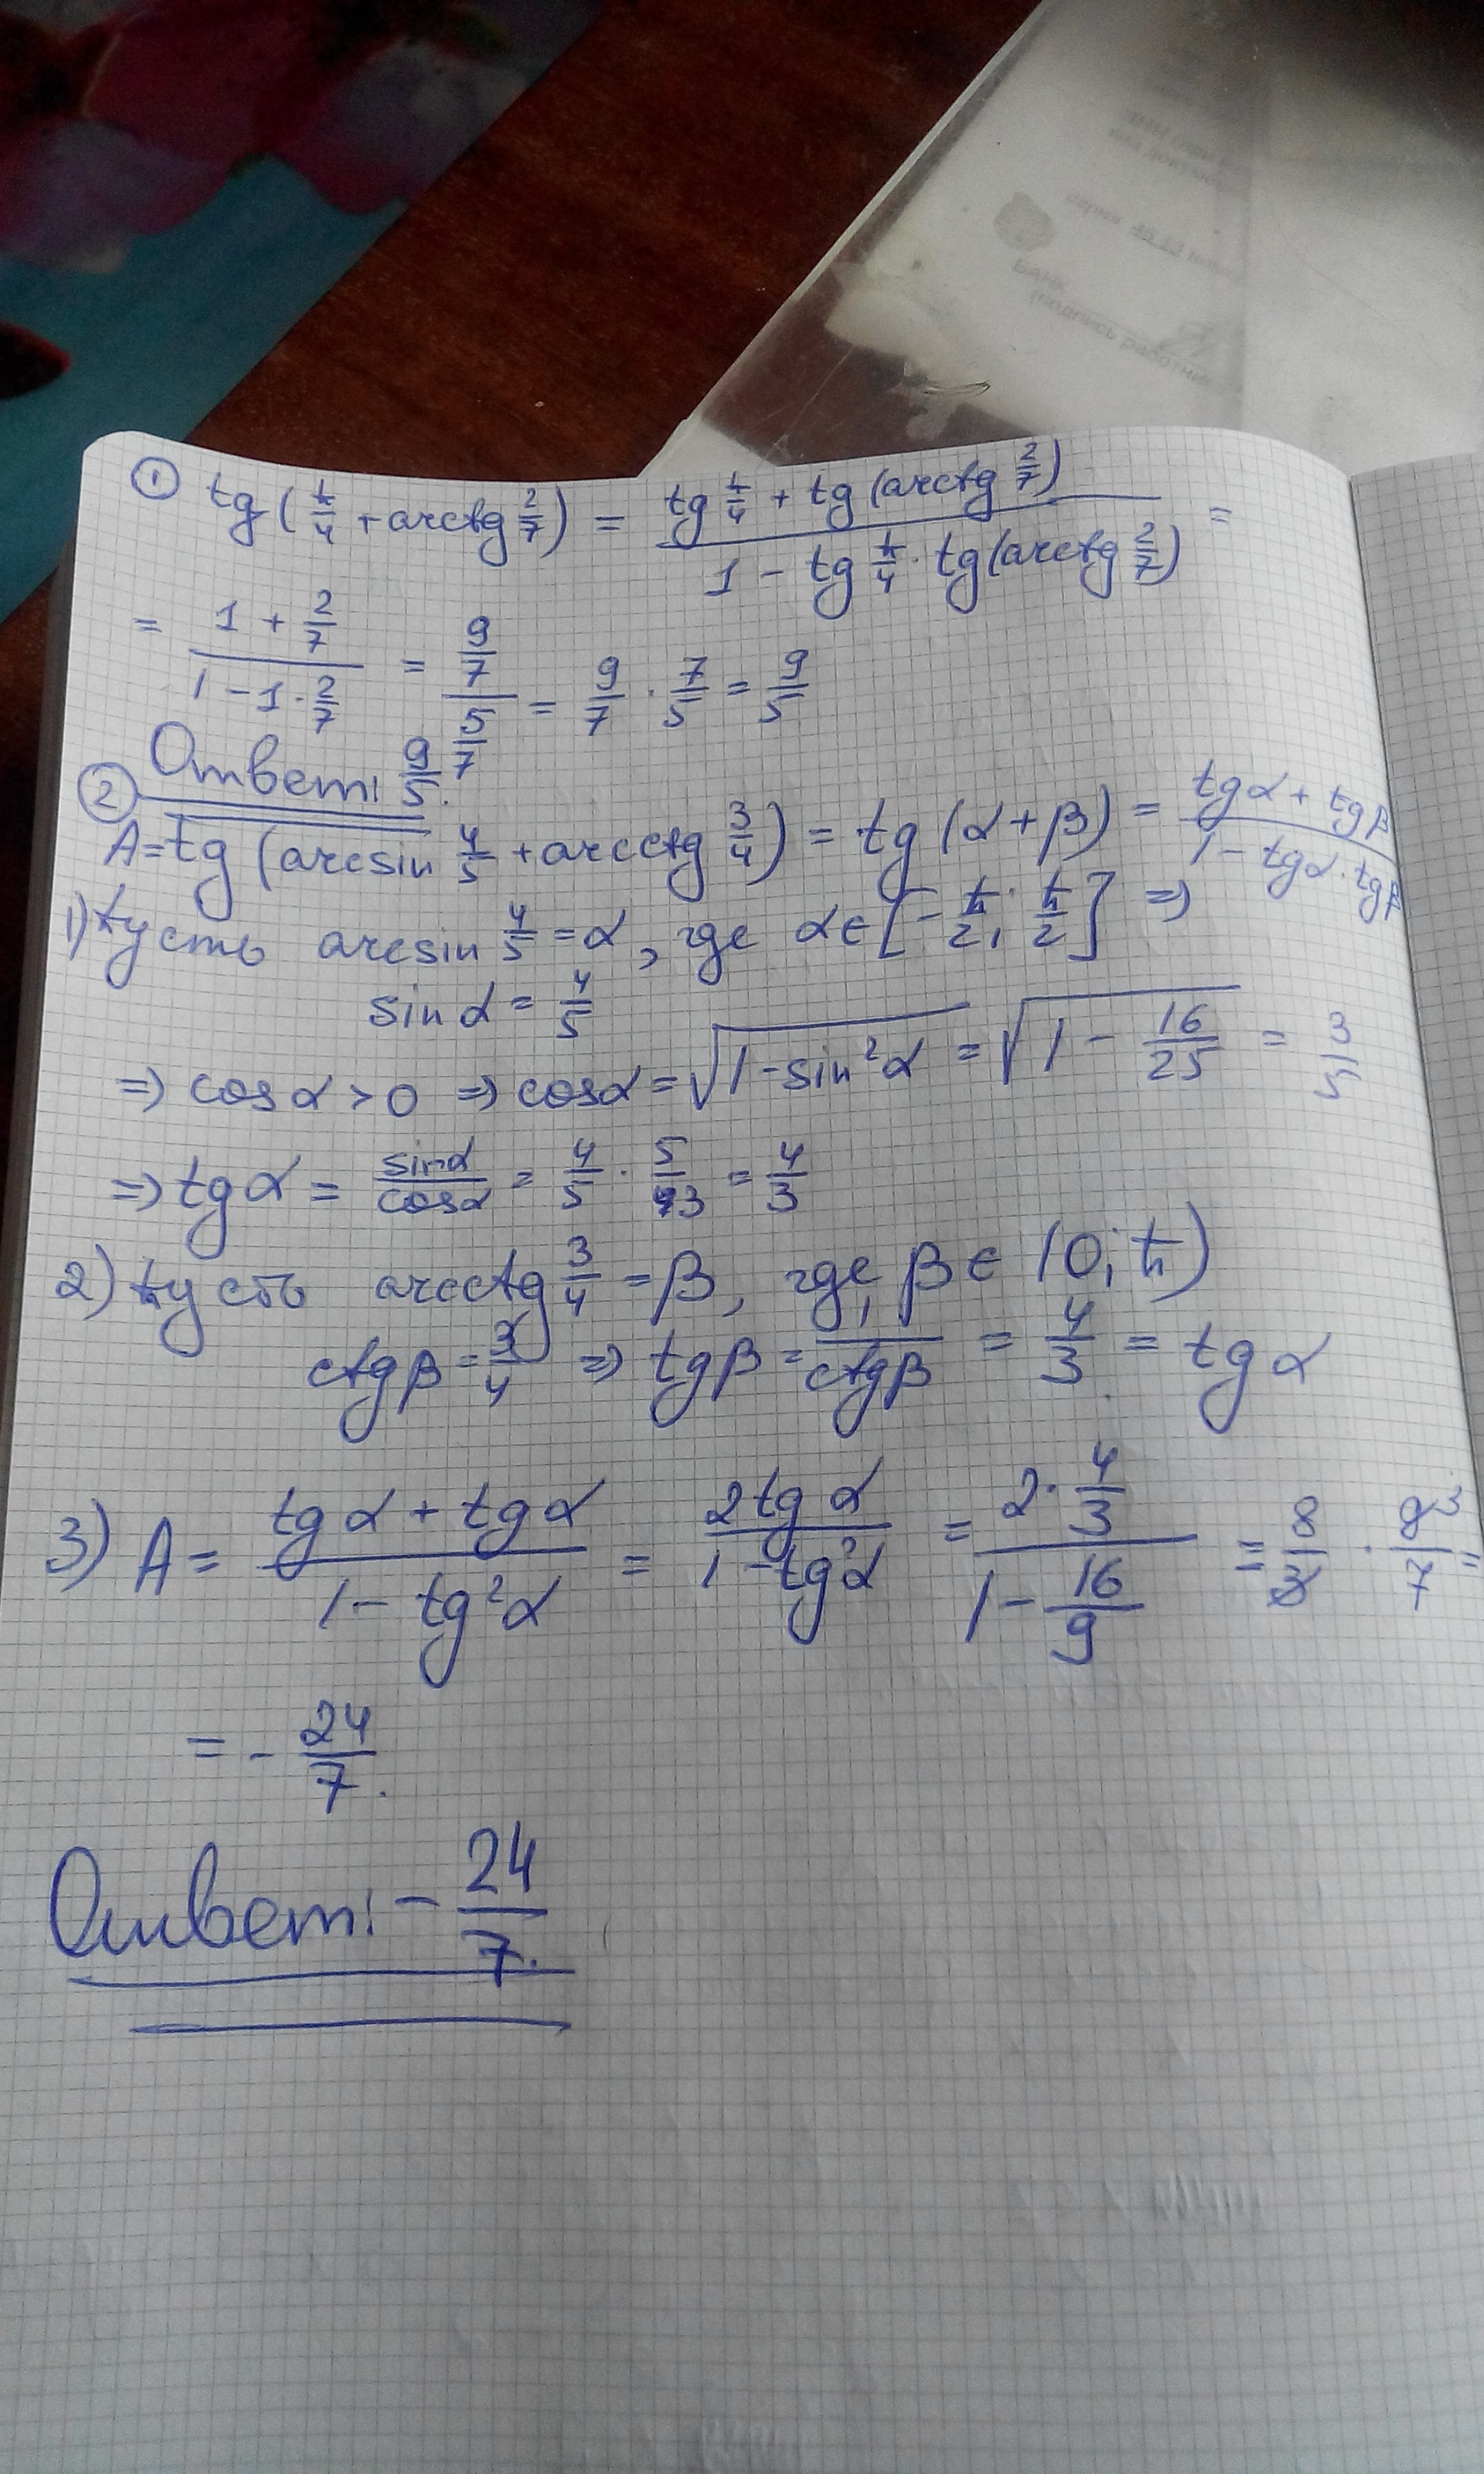 ① tg(π/4 + arctg 2/7) = (tg π/4 + tg(arctg 2/7)) / (1 - tg π/4 · tg(arctg 2/7)) =
= (1 + 2/7) / (1 - 1 · 2/7) = (9/7) / (5/7) = 9/7 · 7/5 = 9/5
Ответ: 9/5.
② A = tg(arcsin 4/5 + arcctg 3/4) = tg(α + β) = (tgα + tgβ) / (1 - tgα · tgβ)
1) Пусть arcsin 4/5 = α, где α ∈ [-π/2; π/2] ⇒
sin α = 4/5
⇒ cos α > 0 ⇒ cosα = √(1 - sin²α) = √(1 - 16/25) = 3/5
⇒ tgα = sinα/cosα = 4/5 · 5/3 = 4/3
2) Пусть arcctg 3/4 = β, где β ∈ (0; π)
ctgβ = 3/4 ⇒ tgβ = 1/ctgβ = 4/3 = tg α
3) A = (tgα + tgα) / (1 - tg²α) = 2tg α / (1 - tg²α) = (2 · 4/3) / (1 - 16/9) = 8/3 · 9³/7 =
= - 24/7.
Ответ: - 24/7.